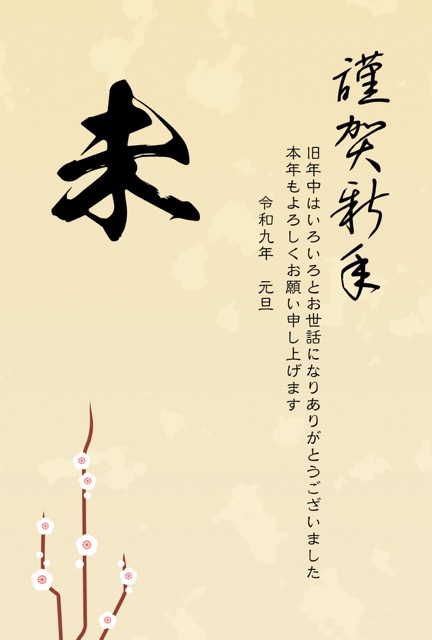 謹賀新年
旧年中はいろいろとお世話になりありがとうございました
本年もよろしくお願い申し上げます
令和九年　元旦
未